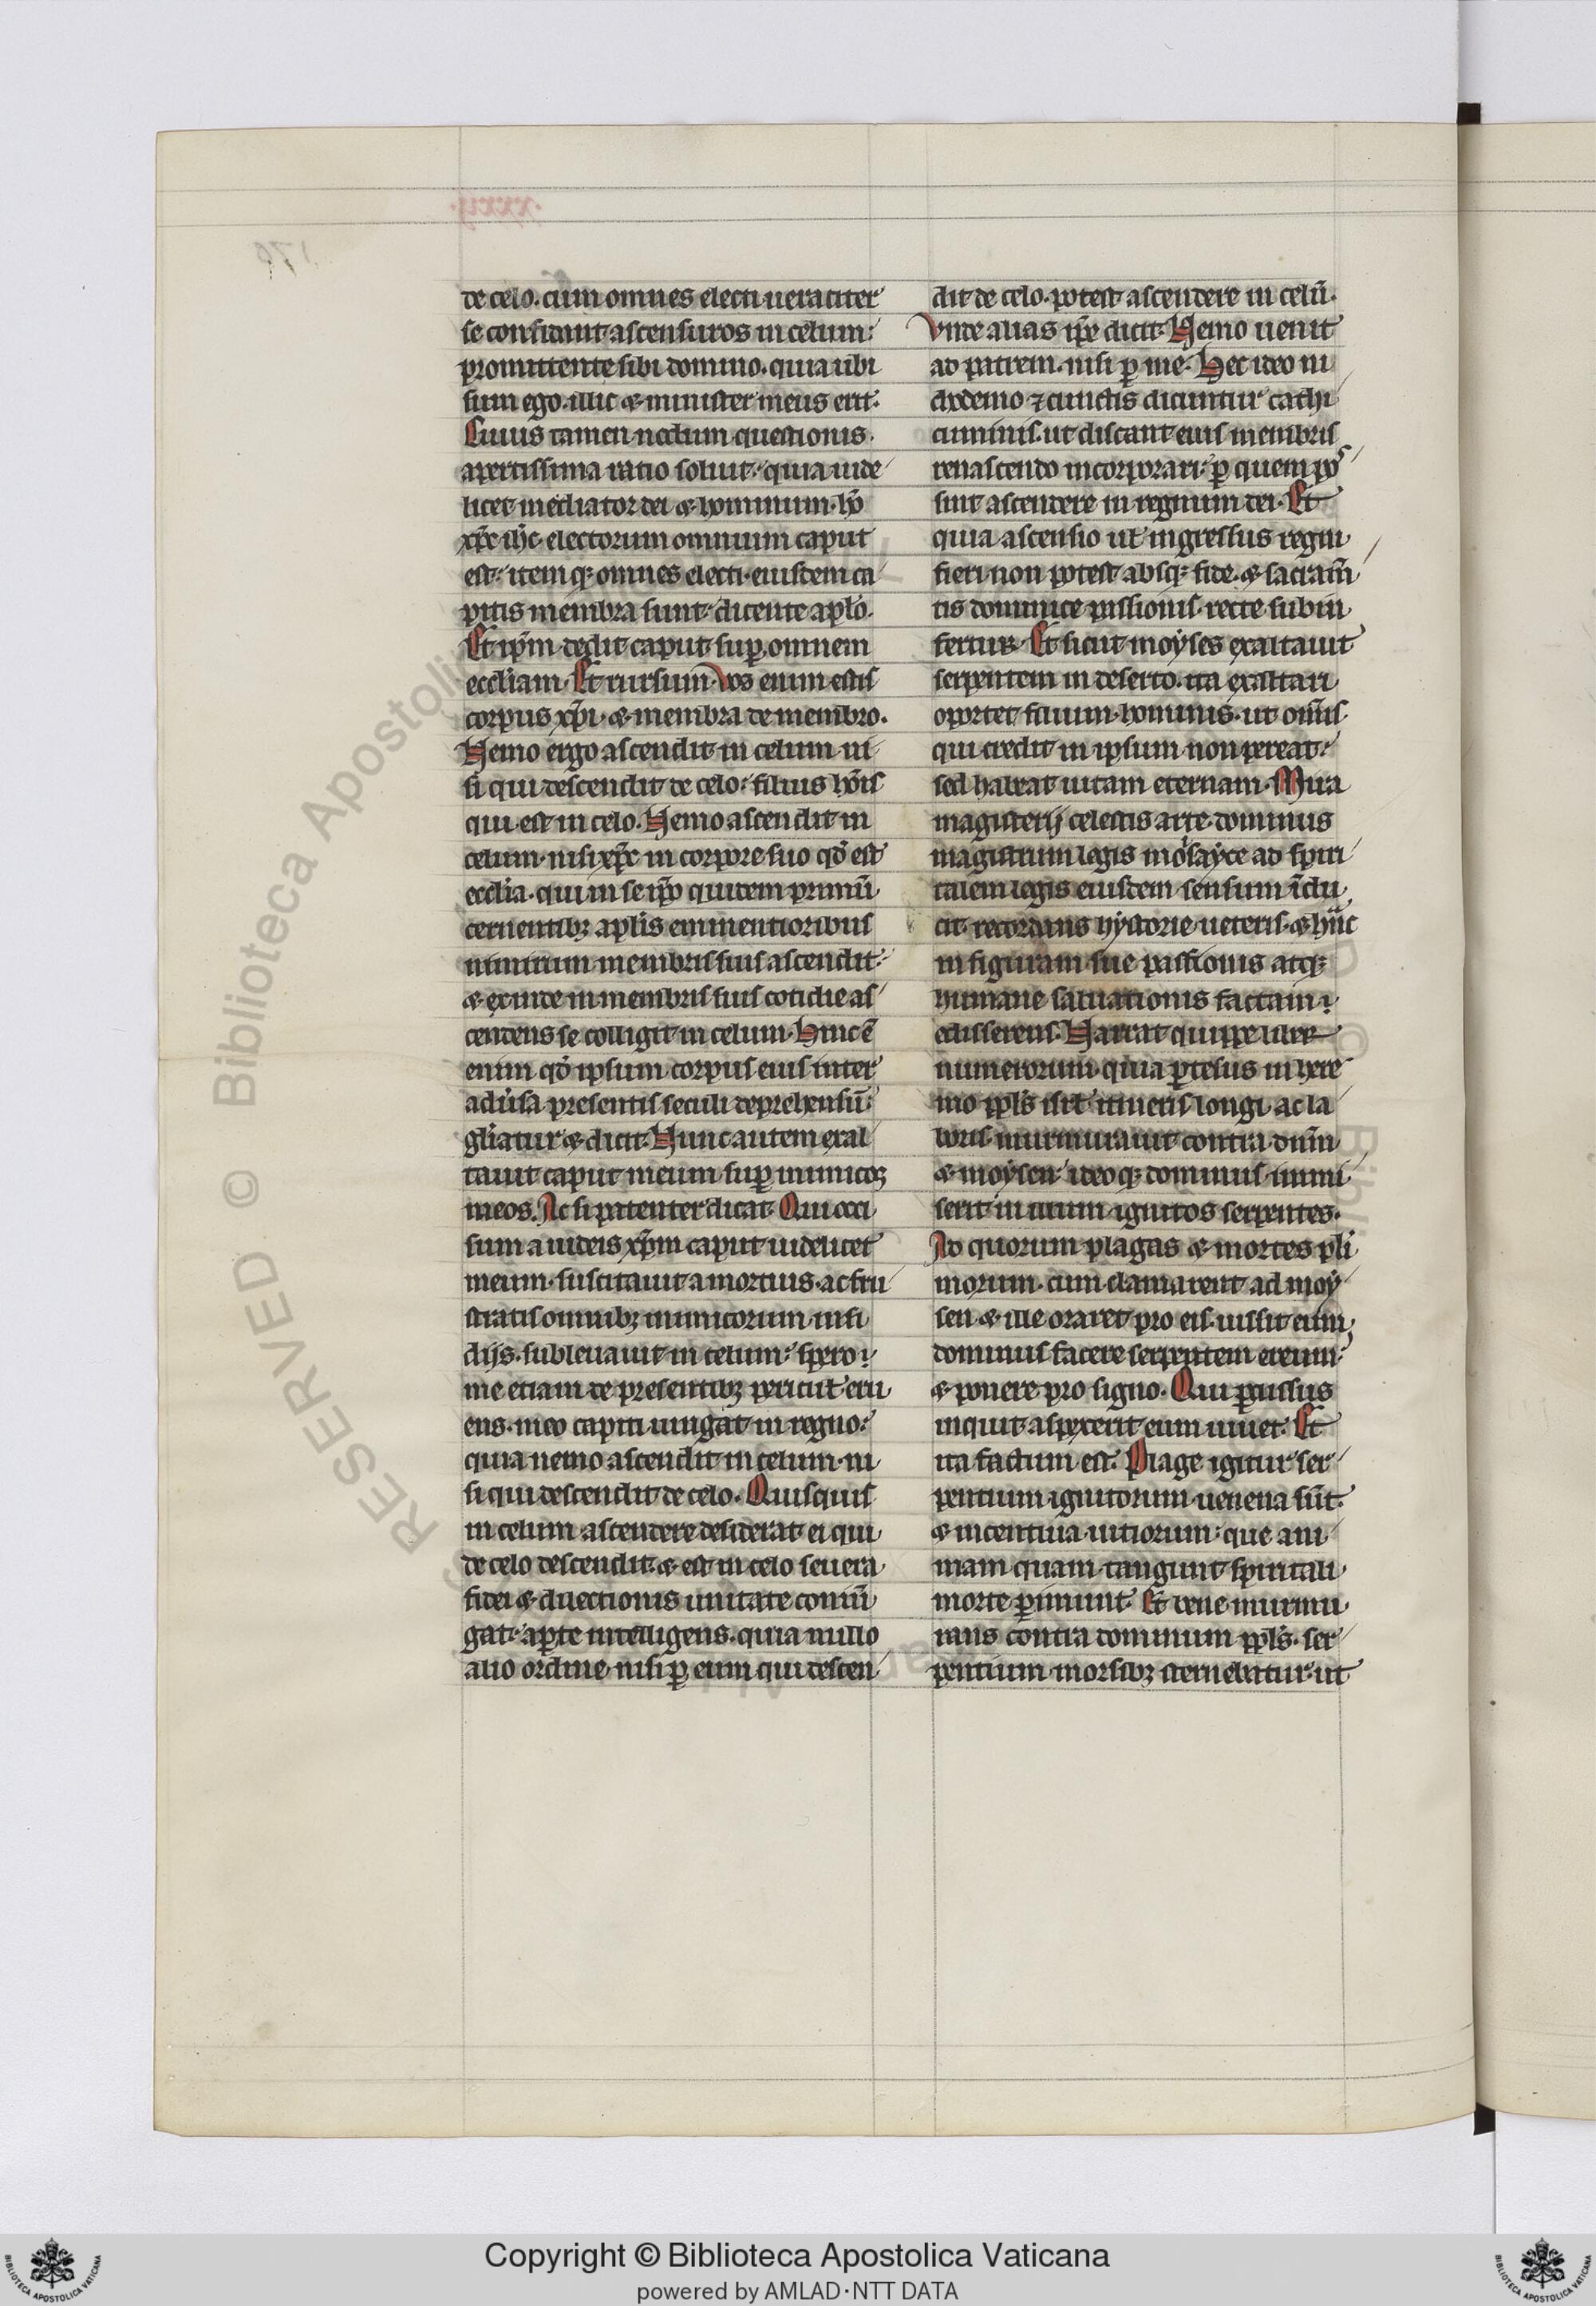 de celo. cum omnes electi ueraciter
se confidant ascensuros in celum:
promittente sibi domino. quia ubi
sum ego. illic & minister meus erit.
Cuius tamen nodum questionis.
apertissima ratio soluit: quia uide
licet mediator dei & hominum. hō
xp̄c ih̄c electorum omnium caput
est: itemq; omnes electi. eiusdem ca
pitis membra sunt. dicente apl̄o.
Et ip̄m dedit caput sup̱ omnem
eccl̄iam. Et rursum. Vos enim estis
corpus xp̄i. & membra de membro.
Nemo ergo ascendit in celum. ni
si qui descendit de celo: filius hōis
qui est in celo. Nemo ascendit in
celum. nisi xp̄c in corpore suo qđ est
eccl̄ia. qui in se ip̄o quidem primū
cernentibꝫ apl̄is eminentioribus
nimirum membris suis ascendit:
& exinde in membris suis cotidie as
cendens se colligit in celum. Hinc ē
enim qđ ipsum corpus eius inter
aduīsa presentis seculi deprehensū:
gl̄iatur & dicit. Nunc autem exal
tauit caput meum sup̱ inimicoꝫ
meos. Ac si patenter dicat. Qui occi
sum a iudeis xp̄m caput uidelicet
meum. suscitauit a mortuis. ac fru
stratis omnibꝫ inimicorum insi
dijs. subleuauit in celum: spero:
me etiam de presentibꝫ pericul̄ eru
ens. meo capiti iungat in regno:
quia nemo ascendit in celum. ni
si qui descendit de celo. Quisquis
in celum ascendere desiderat ei qui
de celo descendit. & est in celo se uera
fidei & dilectionis unitate coniū
gat. ap̱te intelligens. quia nullo
alio ordine. nisi p̱ eum qui descen
dit de celo. potest ascendere in celū.
Vnde alias ip̄e dicit. Nemo uenit
ad patrem. nisi p̱ me. Hec ideo ni
chodemo ⁊ cunctis dicuntur cathi
cuminis. ut discant eius membris
renascendo incorporari: p̱ quem pos
sint ascendere in regnum dei. Et
quia ascensio ul̄ ingressus regni
fieri non potest absq; fide. & sacram̄
tis dominice passionis. recte subin
fertur. Et sicut moyses exaltauit
serpentem in deserto. ita exaltari
oportet filium hominis. ut om̄is
qui credit in ipsum non pereat:
sed habeat uitam eternam. Mira
magisterij celestis arte. dominus
magistrum legis mosayce ad spiri
talem legis eiusdem sensum īdu
cit. recordans hystorie ueteris. & hāc
in figuram sue passionis atq;
humane saluationis factam:
edisserens. Narrat quippe liber
numerorum. quia p̱tesus in here
mo ppl̄s isrl̄ itineris longi ac la
boris. murmurauit contra dn̄m
& moysen. ideoq; dominus inmi
serit in illum ignitos serpentes.
Ad quorum plagas & mortes pl̄i
morum. cum clamarent ad moy
sen. & ille oraret pro eis. iussit eum
dominus facere serpentem ereum:
& ponere pro signo. Qui p̱cussus
inquit aspexerit eum uiuet. Et
ita factum est. Plage igitur ser
pentium ignitorum. uenena sūt.
& incentiua uitiorum: que ani
mam quam tangunt spiritali
morte p̱imunt. Et bene murmu
rans contra dominum ppl̄s. ser
pentium morsibꝫ sternebatur. ut
Copyright © Biblioteca Apostolica Vaticana
powered by AMLAD·NTT DATA